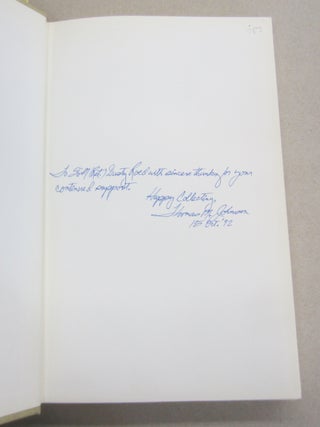 To SGM (Ret.) Dusty Rhed with sincere thanks for your
continued support.
Happy Collecting,
Thomas M. Johnson
1st Oct. '92